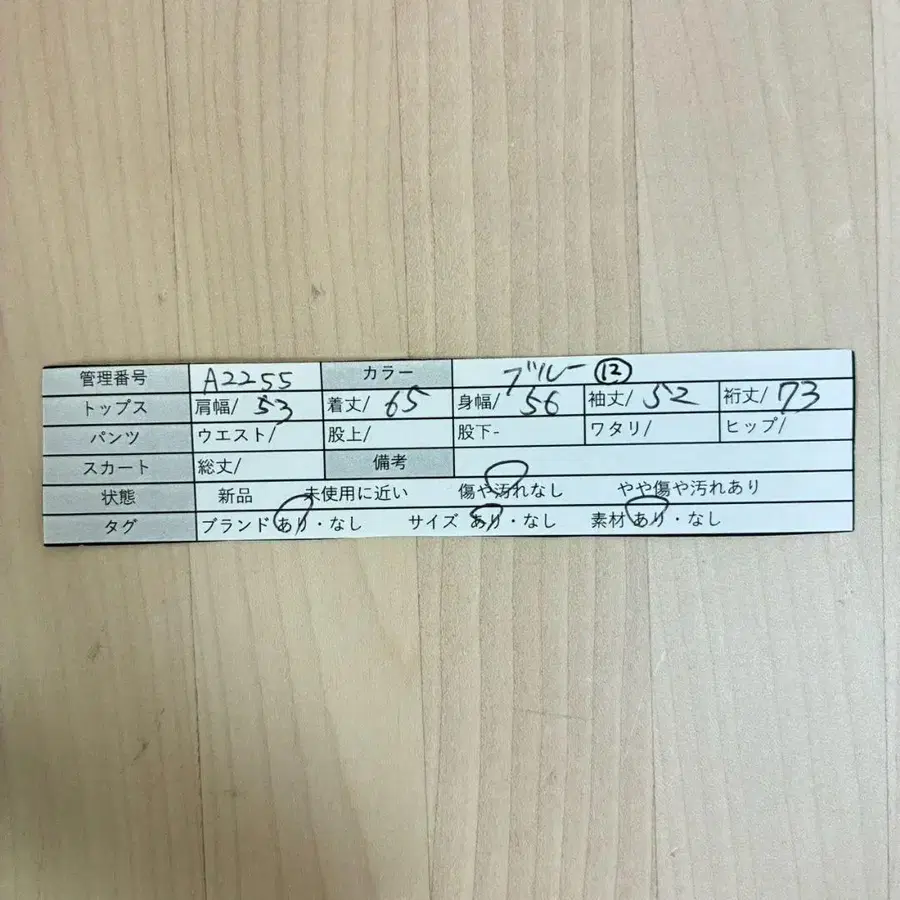 管理番号 A2255 カラー ブルー ⑫
トップス 肩幅/ 53 着丈/ 65 身幅/ 56 袖丈/ 52 裄丈/ 73
パンツ ウエスト/ 股上/ 股下- ワタリ/ ヒップ/
スカート 総丈/ 備考
状態 新品 未使用に近い 傷や汚れなし やや傷や汚れあり
タグ ブランド あり・なし サイズ あり・なし 素材 あり・なし